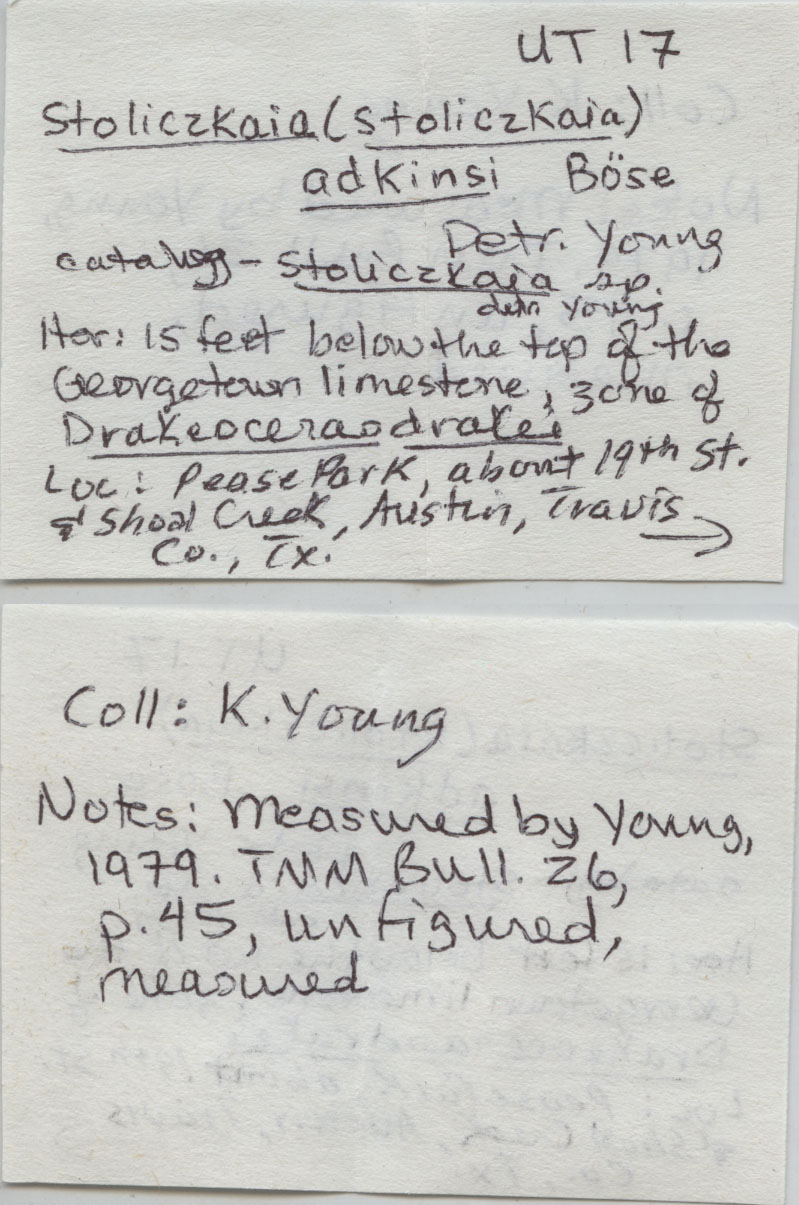 UT 17
Stoliczkaia (Stoliczkaia)
adkinsi Böse
Detr. Young
catalog - Stoliczkaia sp.
detr Young
Hor: 15 feet below the top of the
Georgetown limestone, zone of
Drakeoceras drakei
Loc: Pease Park, about 19th St.
& Shoal Creek, Austin, Travis →
Co., Tx.
Coll: K. Young
Notes: measured by Young,
1979. TMM Bull. 26,
p. 45, unfigured,
measured